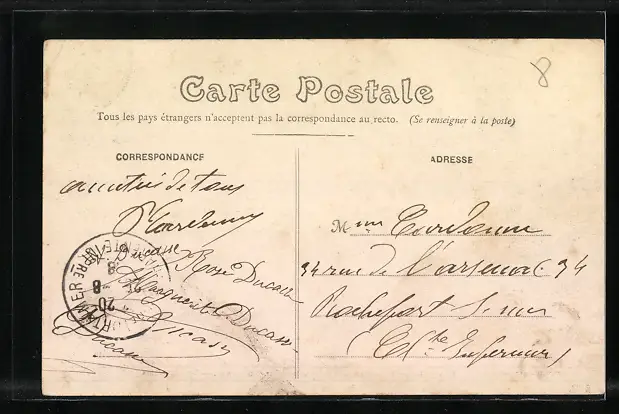 8
Carte Postale
Tous les pays étrangers n'acceptent pas la correspondance au recto. (Se renseigner à la poste)
CORRESPONDANCE
ADRESSE
amitiés de tous
Ducasse
Rose Ducasse
Marguerite Ducasse
Ducasse
Ducasse
20 - 8
Mme
34 rue de l'arsenal 34
Rochefort s. mer
Ch'te Inferieure